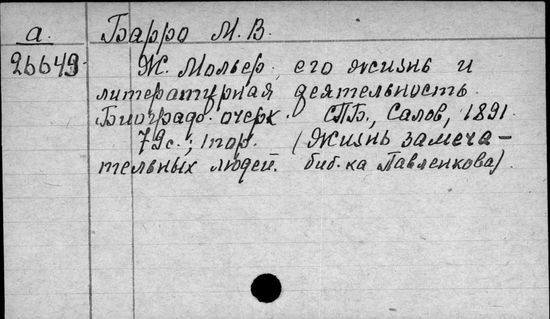 а. Барро М. В.
26649 Ж. Мольер, его жизнь и
литературная деятельность.
Биограф. очерк. СПБ., Салов, 1891.
79с.; 1пор. (Жизнь замеча-
тельных людей. биб.ка Павленкова).